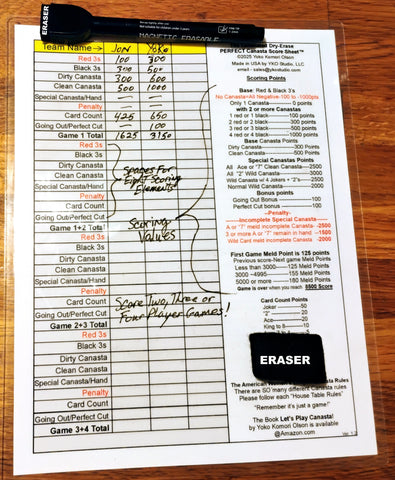 ERASER
MAGNETIC ERASABLE
Team Name → Jon Yoko
Red 3s 100 300
Black 3s 300 500
Dirty Canasta 300 600
Clean Canasta 500 1000
Special Canastas/Hand — —
Penalty — —
Card Count 425 650
Going Out/Perfect Cut — 100
Game 1 Total 1625 3150
Red 3s
Black 3s
Dirty Canasta
Clean Canasta
Special Canasta/Hand
Penalty
Card Count
Going Out/Perfect Cut
Game 1+2 Total
Spaces For
Eight Scoring
Elements
Scoring
Values
Red 3s
Black 3s
Dirty Canasta
Clean Canasta
Special Canasta/Hand
Penalty
Card Count
Going Out/Perfect Cut
Game 2+3 Total
Score Two, Three or
Four Player Games!
Red 3s
Black 3s
Dirty Canasta
Clean Canasta
Special Canasta/Hand
Penalty
Card Count
Going Out/Perfect Cut
Game 3+4 Total
Dry-Erase
PERFECT Canasta Score Sheet™
©2025 Yoko Komori Olson
Made in USA by YKO Studio, LLC
email - sales@ykostudio.com
Scoring Points
Base: Red & Black 3's
No Canasta=All Negative-100 to -1000pts
Only 1 Canasta 0 points
with 2 or more Canastas
1 red or 1 black 100 points
2 red or 2 black 300 points
3 red or 3 black 500 points
4 red or 4 black 1000 points
Base Canasta Points
Dirty Canasta 300 points
Clean Canasta 500 points
Special Canastas Points
All Ace or "7" Clean Canasta 2500
All "2" Wild Canasta 3000
Wild Canasta w/ 4 Jokers + "2's" 2500
Normal Wild Canasta 2000
Bonus points
Going Out Bonus 100
Perfect Cut bonus 100
-Penalty-
Incomplete Special Canasta
A or "7" meld incomplete Canasta -2500
3 or more A or "7" remain in hand -1500
Wild Card meld incomplete Canasta -2000
First Game Meld Point is 125 points
Previous score-Next game Meld Points
Less than 3000 125 Meld Points
3000 -4995 155 Meld Points
5000 or more 180 Meld Points
Game is over when you reach 8500 Score
Card Count Points
Joker 50
"2" 20
Ace 20
King to 8 10
ERASER
The American Canasta Rules
There are SO many different Canasta rules
Please follow each "House Table Rules"
"Remember it's just a game!"
The Book Let's Play Canasta!
by Yoko Komori Olson is available
@Amazon.com